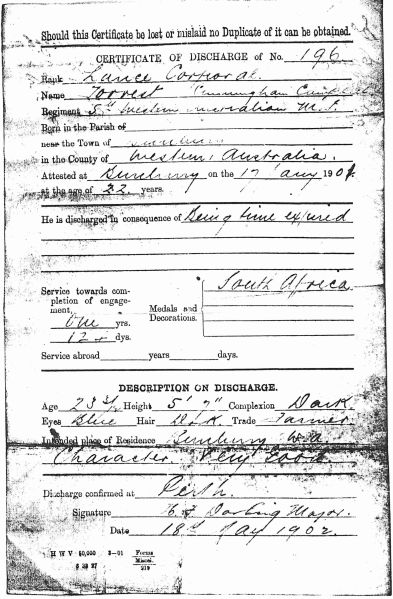 Should this Certificate be lost or mislaid no Duplicate of it can be obtained.
CERTIFICATE OF DISCHARGE of No. 196
Rank Lance Corporal
Name Forrest Cunningham
Regiment 5th Western Australian M.I.
Born in the Parish of
near the Town of Bunbury
in the County of Western Australia.
Attested at Bunbury on the 17 190
at the age of 22 years.
He is discharged in consequence of Being time expired
South Africa
Service towards com-
pletion of engage-
ment,
One yrs.
dys.
Medals and
Decorations.
Service abroad years days.
DESCRIPTION ON DISCHARGE.
Age 23 Height 5' 7" Complexion Dark
Eyes Blue Hair Dark Trade Farmer
Intended place of Residence Bunbury W.A.
Character. Very Good
Discharge confirmed at Perth.
Signature Darling Major.
Date 18th May 1902
H W V 50,000 3—01 Forms